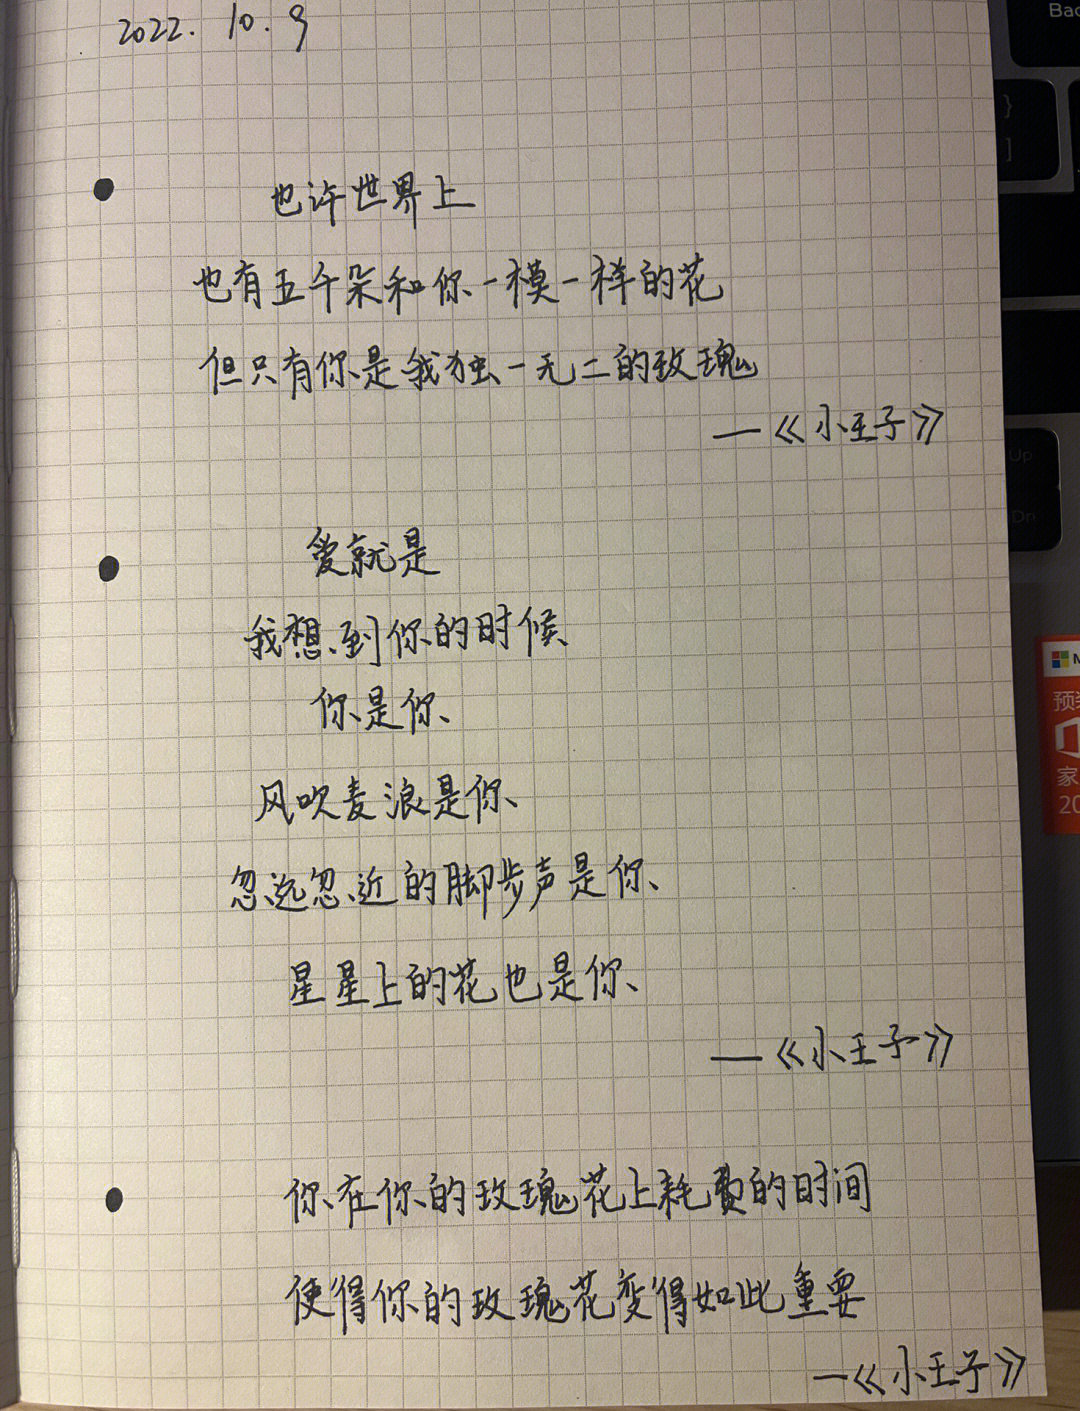 2022. 10. 9
也许世界上
也有五千朵和你一模一样的花
但只有你是我独一无二的玫瑰
—《小王子》
爱就是
我想到你的时候
你是你
风吹麦浪是你
忽远忽近的脚步声是你
星星上的花也是你
—《小王子》
你在你的玫瑰花上耗费的时间
使得你的玫瑰花变得如此重要
—《小王子》
Bac
}
]
Up
Dn
M
预装
家
20